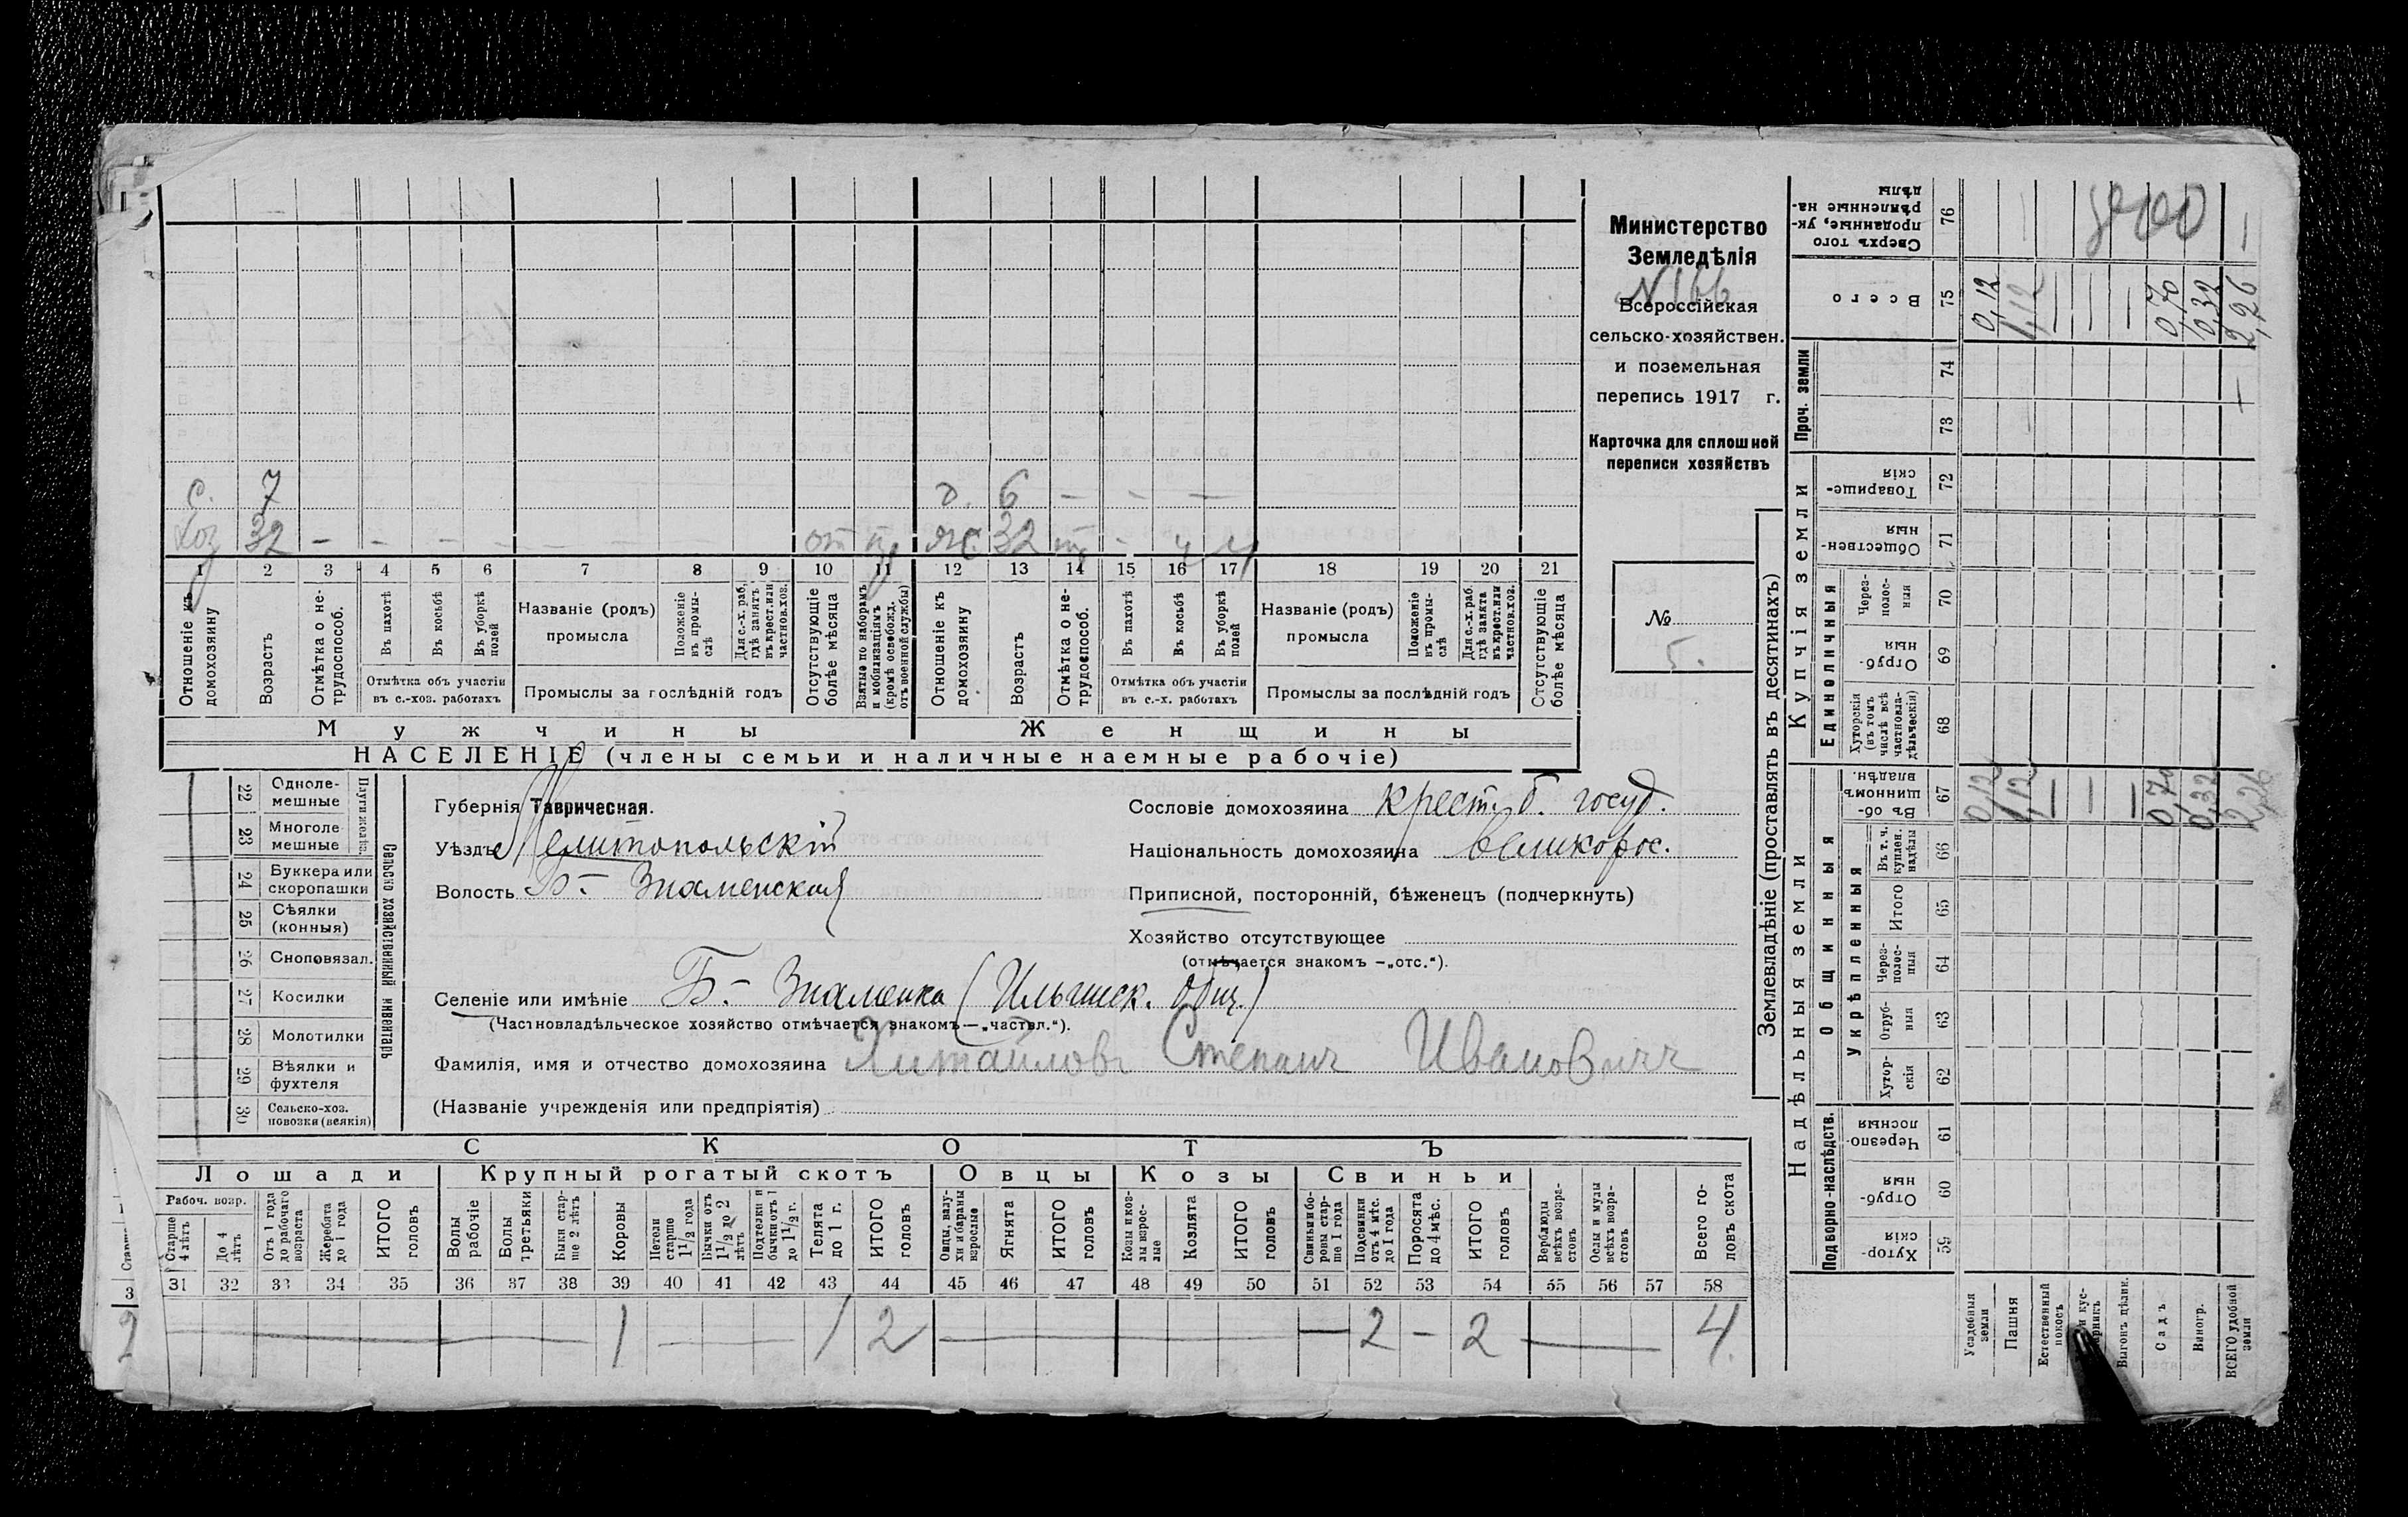 Министерство
Земледѣлія
N 166
Всероссійская
сельско-хозяйствен.
и поземельная
перепись 1917 г.
Карточка для сплошной
переписи хозяйствъ
№
5.
с. 7 д. 6 – - –
Хоз 32 – - - - – – от ж. 32 - ч ч
1 2 3 4 5 6 7 8 9 10 11 12 13 14 15 16 17 18 19 20 21
Отношеніе къ домохозяину
Возрастъ
Отмѣтка о не-трудоспособ.
Въ пахотѣ
Въ косьбѣ
Въ уборкѣ полей
Отмѣтка объ участіи
въ с.-хоз. работахъ
Названіе (родъ)
промысла
Положеніе въ промы-слѣ
Для с.-х. раб. гдѣ занятъ въ крест. или частнов. хоз.
Промыслы за послѣдній годъ
Отсутствующіе болѣе мѣсяца
Взятые по наборамъ и мобилизаціямъ (кромѣ освобожд. отъ военной службы)
Отношеніе къ домохозяину
Возрастъ
Отмѣтка о не-трудоспособ.
Въ пахотѣ
Въ косьбѣ
Въ уборкѣ полей
Отмѣтка объ участіи
въ с.-х. работахъ
Названіе (родъ)
промысла
Положеніе въ промы-слѣ
Для с.-х. раб. гдѣ занята въ крест. или частнов. хоз.
Промыслы за послѣдній годъ
Отсутствующіе болѣе мѣсяца
Мужчины Женщины
НАСЕЛЕНІЕ (члены семьи и наличные наемные рабочіе)
22 Одноле-мешные
23 Многоле мешные
Плуги желѣз.
24 Буккера или скоропашки
25 Сѣялки (конныя)
26 Сноповязал.
27 Косилки
28 Молотилки
29 Вѣялки и фухтеля
30 Сельско-хоз. повозки (всякія)
Сельско хозяйственный инвентарь
Губернія Таврическая.
Уѣздъ Мелитопольскій
Волость Б.- Знаменская
Сословіе домохозяина крест. б. госуд.
Національность домохозяина великорос.
Приписной, посторонній, бѣженецъ (подчеркнуть)
Хозяйство отсутствующее
(отмѣчается знакомъ –„отс.“).
Селеніе или имѣніе Б.- Знаменка (Ильинск. Общ.)
(Частновладѣльческое хозяйство отмѣчается знакомъ—„частвл.“).
Фамилія, имя и отчество домохозяина Хитайловъ Степанъ Ивановичъ
(Названіе учрежденія или предпріятія)
СКОТЪ
Лошади Крупный рогатый скотъ Овцы Козы Свиньи
Рабоч. возр.
Старше 4 лѣтъ
До 4 лѣтъ
Отъ 1 года до рабочаго возраста
Жеребята до 1 года
ИТОГО головъ
Волы рабочіе
Волы третьяки
Быки стар-ше 2 лѣтъ
Коровы
Нетели старше 1½ года
Бычки отъ 1½ до 2 лѣтъ
Подтелки и бычки отъ 1 до 1½ г.
Телята до 1 г.
ИТОГО головъ
Овцы, валу-хи и бараны взрослые
Ягнята
ИТОГО головъ
Козы и коз-лы взрос-лые
Козлята
ИТОГО головъ
Свиньи и бо-ровы стар-ше 1 года
Подсвинки отъ 4 мѣс. до 1 года
Поросята до 4 мѣс.
ИТОГО головъ
Верблюды всѣхъ возра-стовъ
Ослы и мулы всѣхъ возра-стовъ
Всего го-ловъ скота
3 31 32 33 34 35 36 37 38 39 40 41 42 43 44 45 46 47 48 49 50 51 52 53 54 55 56 57 58
2 1 1 2 – 2 – 2 4.
Землевладѣніе (проставлять въ десятинахъ)
Надѣльныя земли
Купчія земли
Проч. земли
Подворно-наслѣдств.
Общинныя
Укрѣпленныя
Единоличныя
Сверхъ того проданные, ук-рѣпленные на-дѣлы 76
Всего 75 0,12 1,12 – – – 0,70 0,32 2,26
74
73
Товарище-скія 72
Обществен-ныя 71
Через-полос-ныя 70
Отруб-ныя 69
Хуторскія (въ томъ числѣ всѣ частновла-дѣльческія) 68
Въ об-щинномъ владѣн. 67 0,12 1,12 – – – 0,70 0,32 2,26
Въ т. ч. куплен. надѣлы 66
Итого 65
Через-полос-ныя 64
Отруб-ныя 63
Хутор-скія 62
Черезпо-лосныя 61
Отруб-ныя 60
Хутор-скія 59
Усадебныя земли
Пашня
Естественный покосъ
и кус-арникъ
Выгонъ дѣлин.
Садъ
Виногр.
ВСЕГО удобной земли